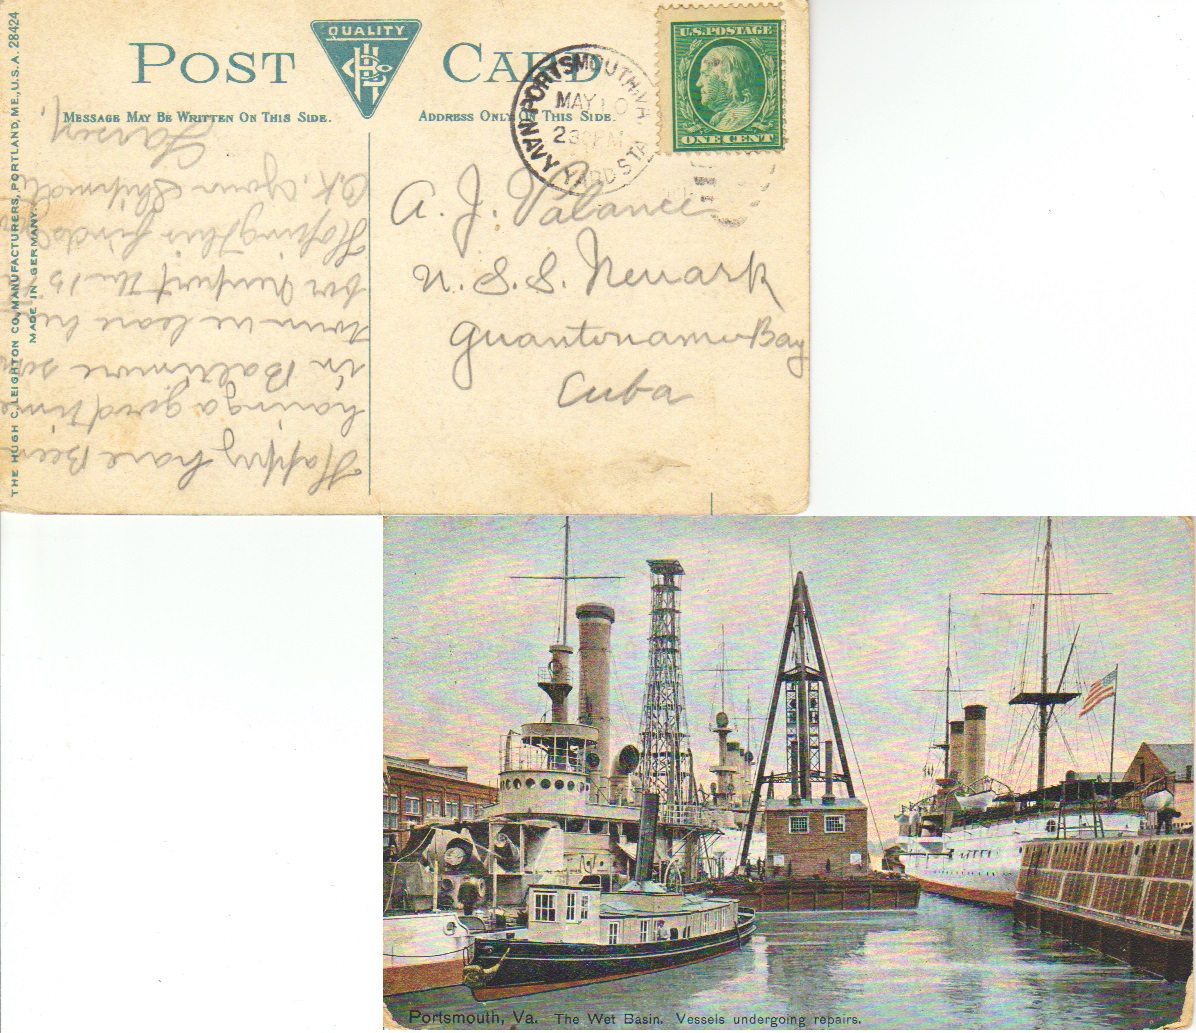 POST CARD
QUALITY
MESSAGE MAY BE WRITTEN ON THIS SIDE.
ADDRESS ONLY ON THIS SIDE.
U.S. POSTAGE
ONE CENT
PORTSMOUTH, VA
MAY 10
230 PM
NAVY YARD STA
THE HUGH C. LEIGHTON CO., MANUFACTURERS, PORTLAND, ME., U.S.A. 28424
MADE IN GERMANY.
A. J. Valance
U. S. S. Newark
Guantonamo Bay
Cuba
Happy have Been
having a good time
in Baltimore
town we leave
for Newport the 15
Hoping this finds
O.K. your Shipmate
Larsen.
Portsmouth, Va. The Wet Basin. Vessels undergoing repairs.